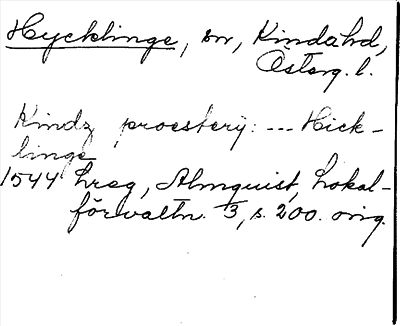 Hycklinge, sn, Kinda hd,
Österg. l.
Kindz proesterij: --- Hick-
linge
1544 hreg, Almquist, Lokal-
förvaltn. 3, s. 200. orig.